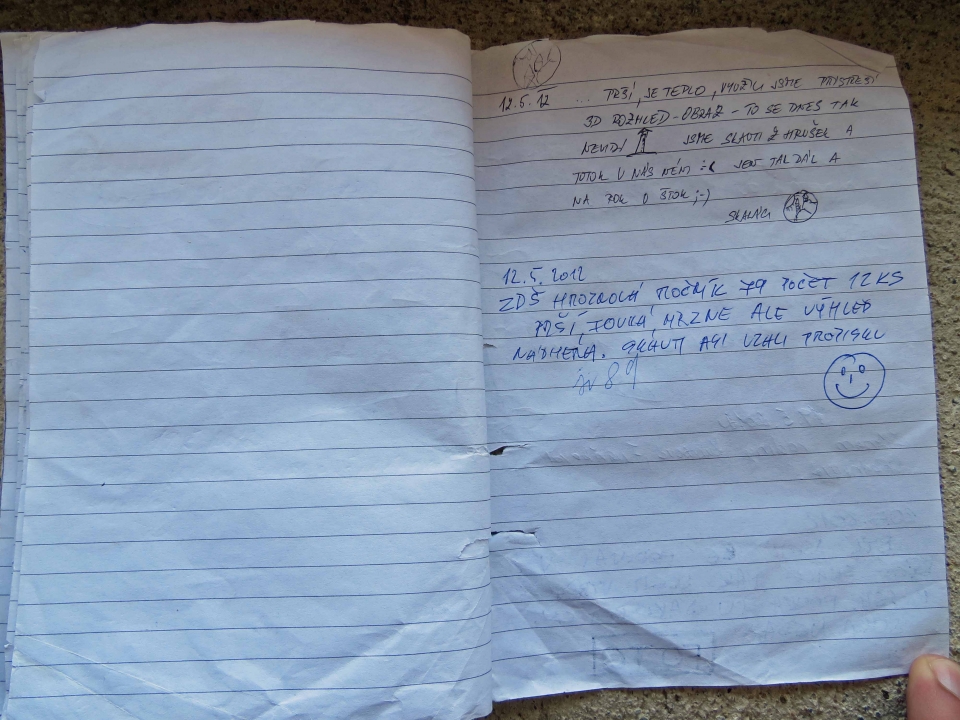 12.5.12 ... PRŠÍ, JE TEPLO, VYUŽILI JSME PŘYSTŘEŠÍ
3D ROZHLED-OBRAZ - TO SE DNES TAK
NEVIDÍ JSME SKAUTI Z HRUŠEK A
TOTOK U NÁS NENÍ :-( JEN TAK DÁL A
NA ROK O ŠTOK ;-)
SKALÁCI
12.5.2012
ZDŠ ROČNÍK 79 POČET 12KS
PRŠÍ, FOUKÁ, MRZNE ALE VÝHLED
NÁDHERA. SKAUTI ASI VZALI PROPISKU